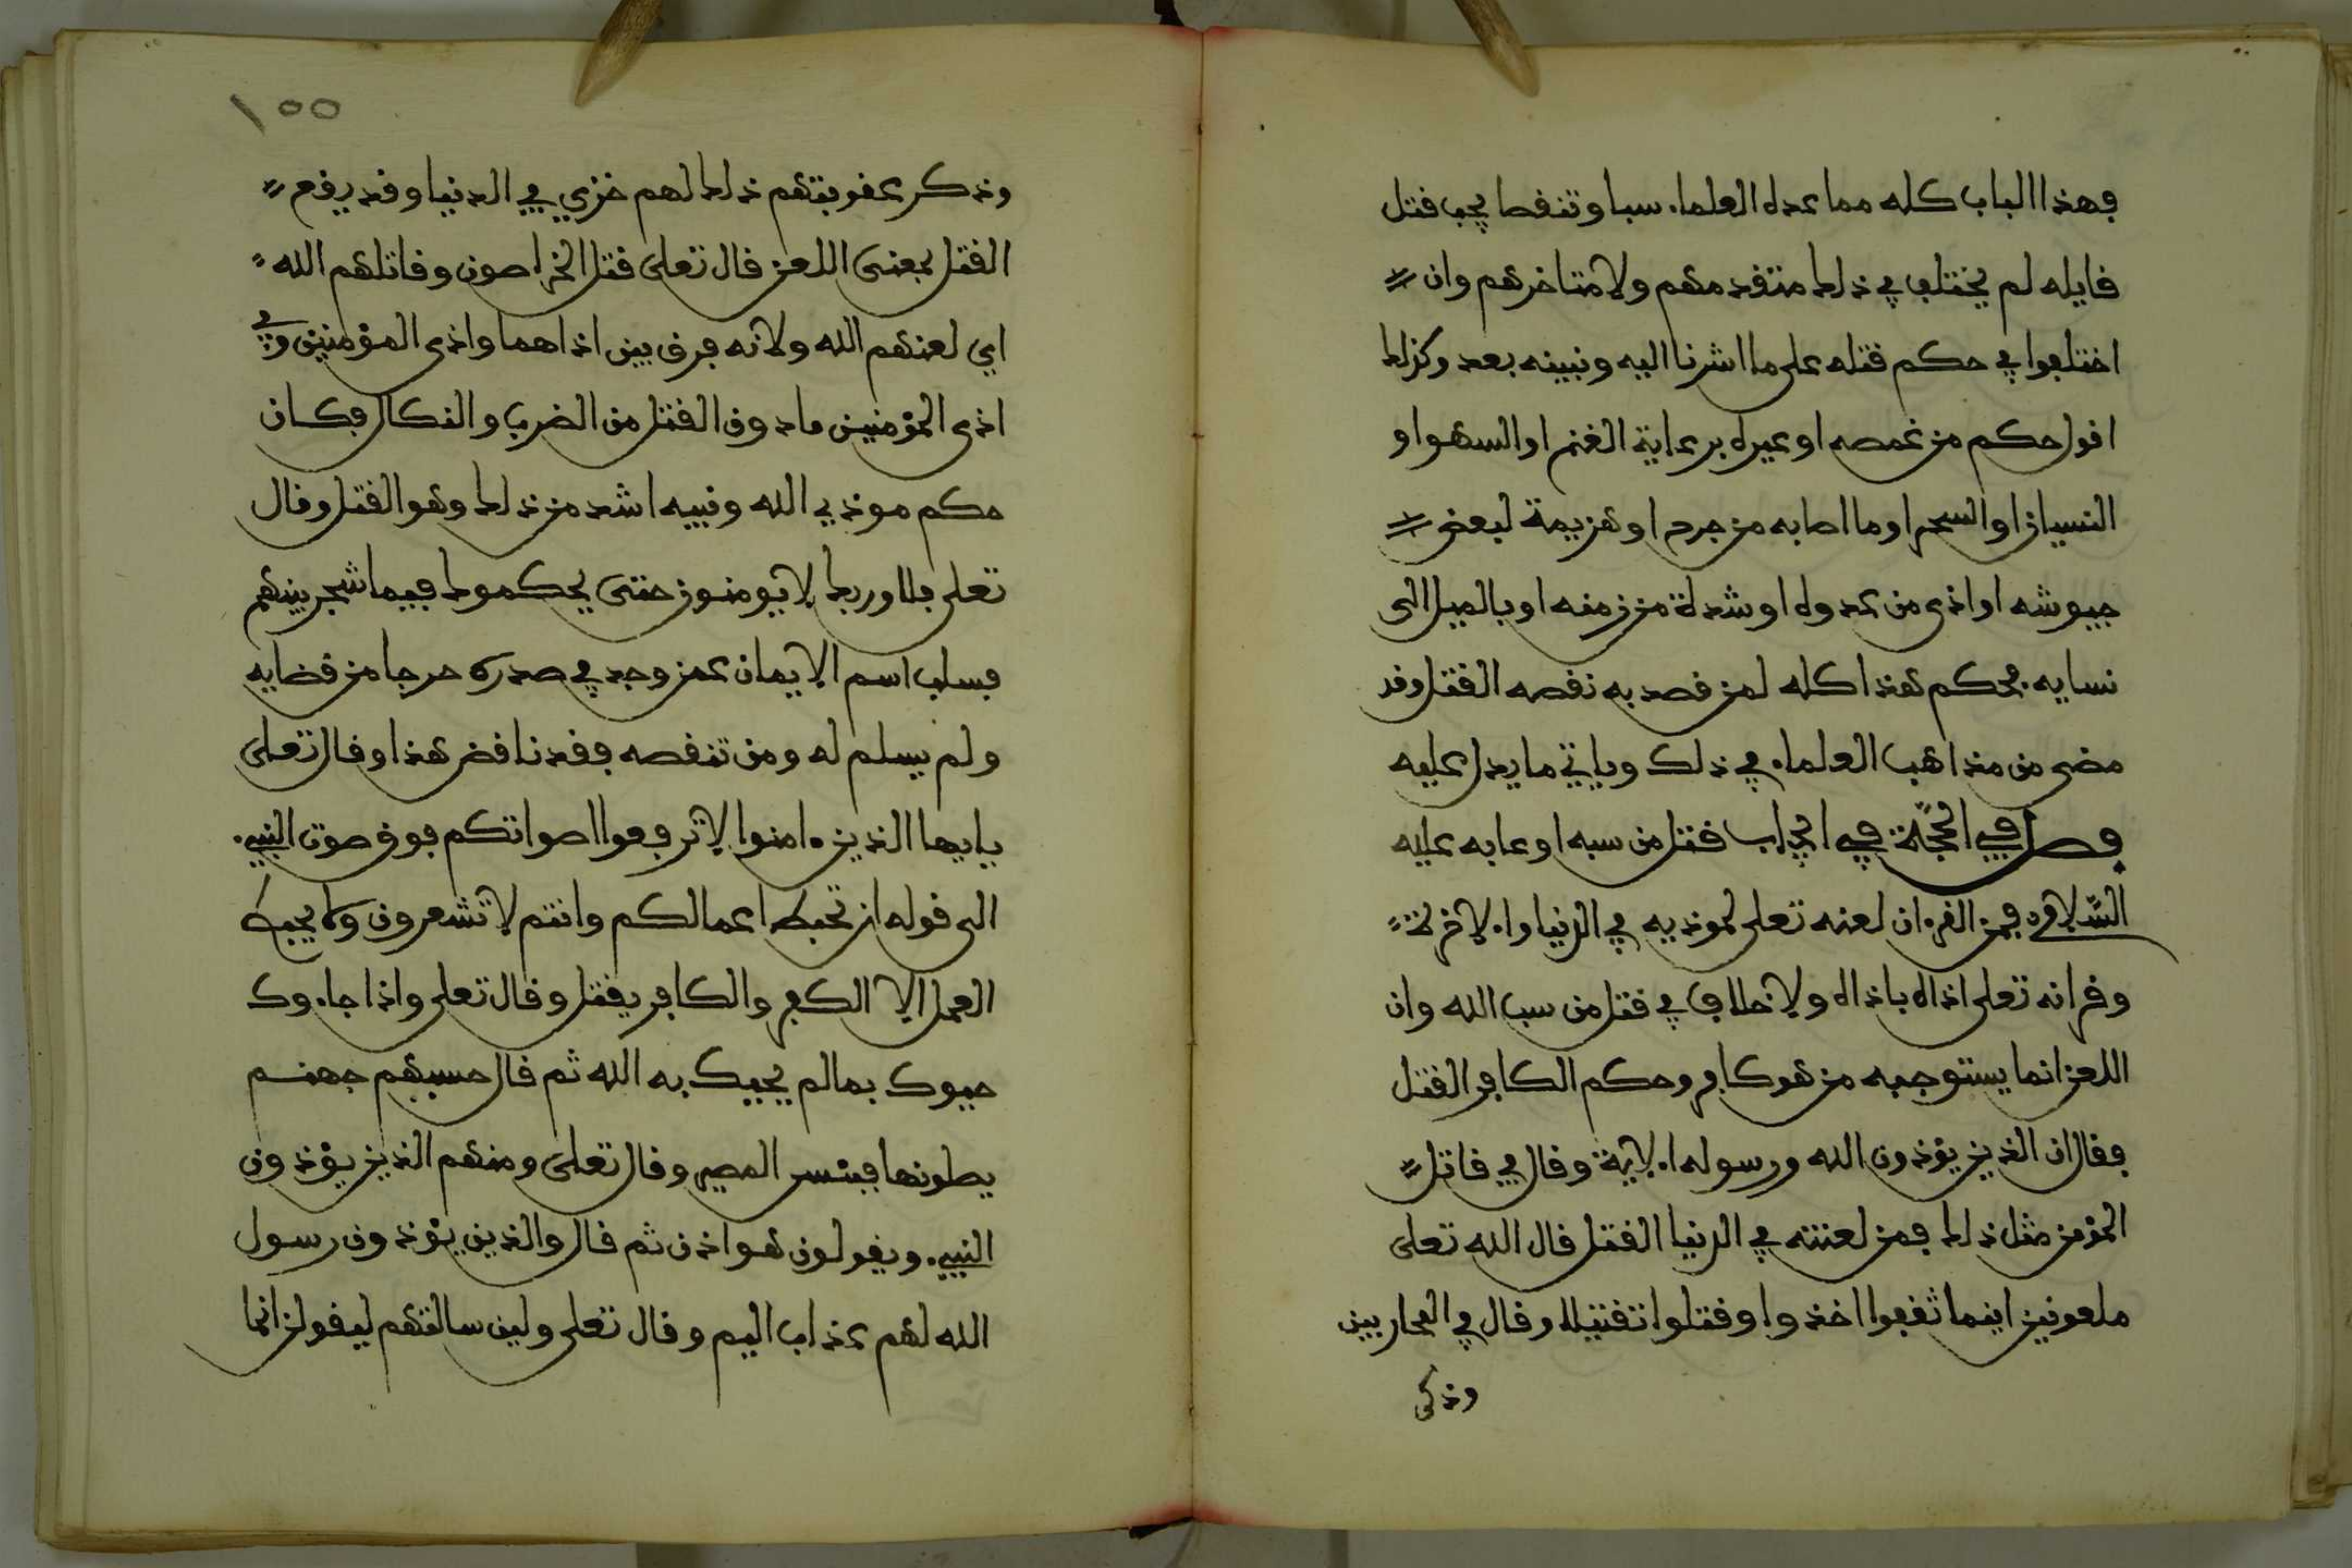 فهذا الباب كله مما عده العلماء سبا وتنقصا يجب قتل
قايله لم يختلف في ذلك متقدمهم ولا متاخرهم وان
اختلفوا في حكم قتله على ما اشرنا اليه ونبينه بعد وكذلك
اقول حكم من غمصه او عيره برعاية الغنم او السهو او
النسيان او السحر او ما اصابه من جرح او هزيمة لبعض
جيوشه او اذى من عدوه او شدة من زمنه او بالميل الى
نسايه فحكم هذا كله لمن قصد به نقصه القتل وقد
مضى من مذاهب العلماء في ذلك وياتي ما يدل عليه
فصل في الحجة في ايجاب قتل من سبه او عابه عليه
السلام فمن القرءان لعنه تعلى لموذيه في الدنيا والاخرة
وقرانه تعلى اذاه باذاه ولا خلاف في قتل من سب الله وان
اللعن انما يستوجبه من هو كافر وحكم الكافر القتل
فقال ان الذين يؤذون الله ورسوله الاية وقال في قاتل
المؤمن مثل ذلك فمن لعنته في الدنيا القتل قال الله تعلى
ملعونين اينما ثقفوا اخذوا وقتلوا تقتيلا وقال في المحاربين
وذكر
١٥٥
وذكر عقوبتهم ذلك لهم خزي في الدنيا وقد يقع
القتل بمعنى اللعن قال تعلى قتل الخراصون وقاتلهم الله
اي لعنهم الله ولانه فرق بين اذاهما واذى المؤمنين وفي
اذى المؤمنين ما دون القتل من الضرب والنكال فكان
حكم موذي الله ونبيه اشد من ذلك وهو القتل وقال
تعلى فلا وربك لا يومنون حتى يحكموك فيما شجر بينهم
فسلب اسم الايمان عمن وجد في صدره حرجا من قضايه
ولم يسلم له ومن تنقصه فقد ناقض هذا وقال تعلى
يايها الذين ءامنوا لا ترفعوا اصواتكم فوق صوت النبيء
الى قوله ان تحبط اعمالكم وانتم لا تشعرون ولا يحبط
العمل الا الكفر والكافر يقتل وقال تعلى واذا جاءوك
حيوك بما لم يحيك به الله ثم قال حسبهم جهنم
يصلونها فبئس المصير وقال تعلى ومنهم الذين يؤذون
النبيء ويقولون هو اذن ثم قال والذين يؤذون رسول
الله لهم عذاب اليم وقال تعلى ولين سالتهم ليقولن انما